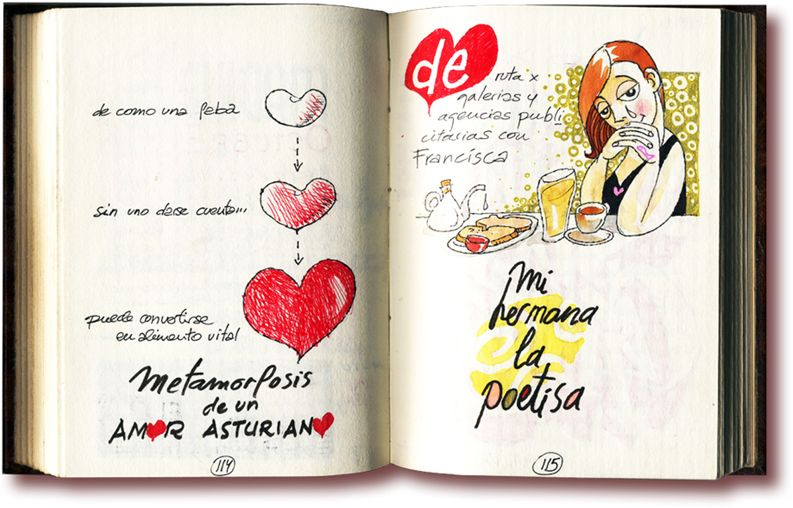 de como una faba
sin uno darse cuenta...
puede convertirse
en alimento vital
Metamorfosis
de un
AMOR ASTURIANO
114
de
ruta x
galerías y
agencias publi
citarias con
Francisca
Mi
hermana
la
poetisa
115